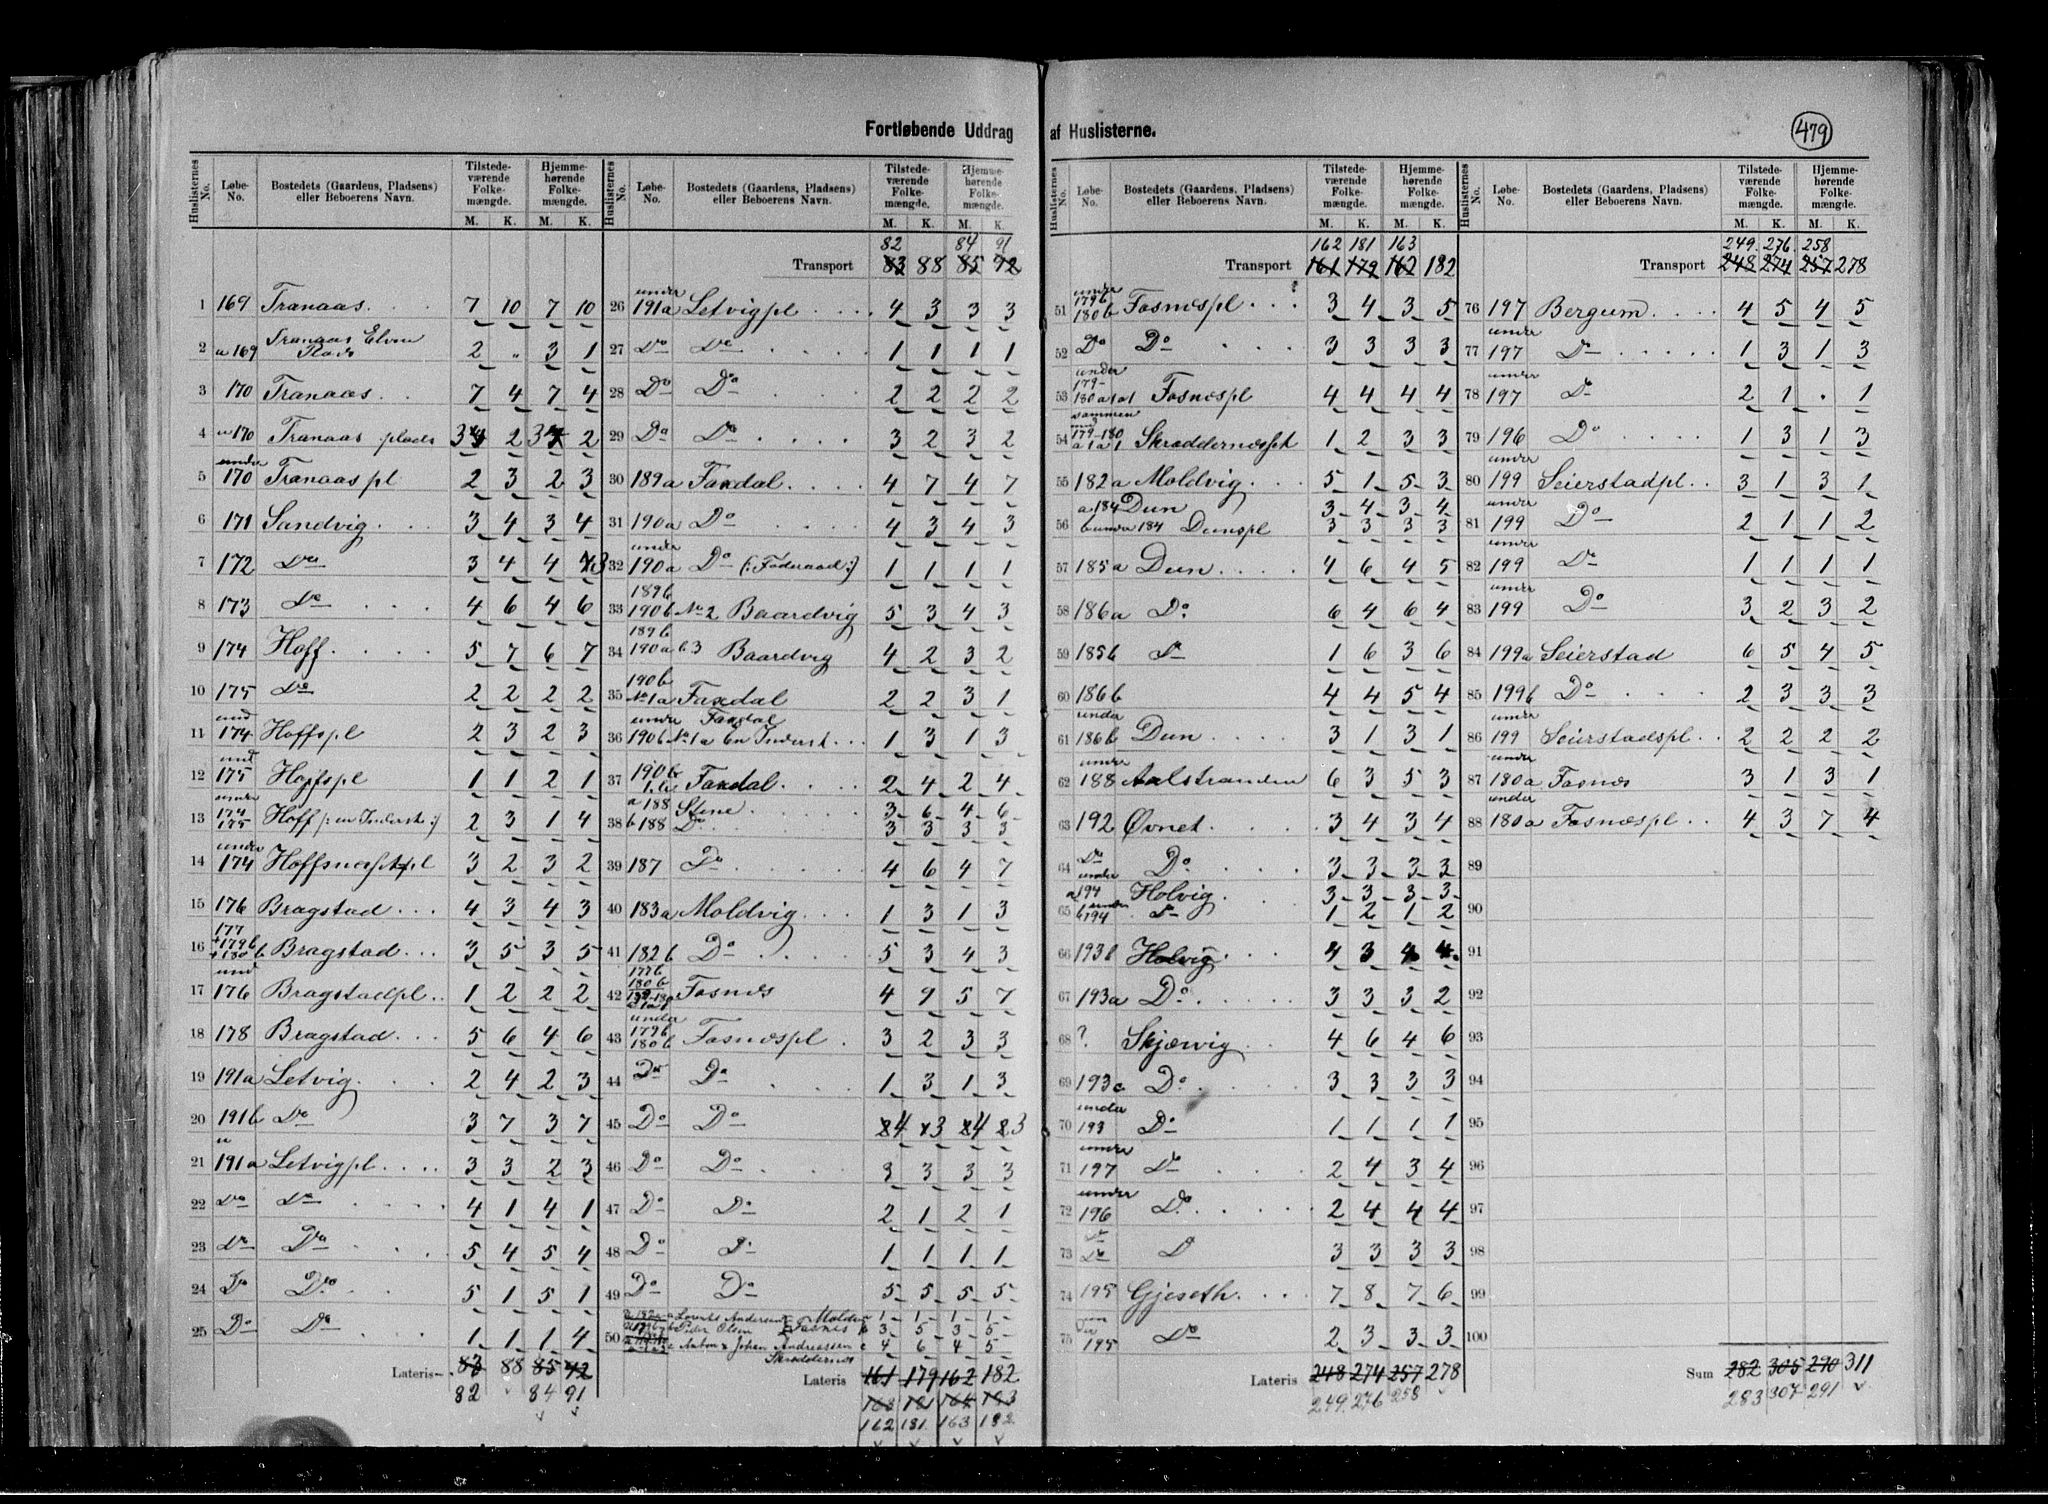 Fortløbende Uddrag af Huslisterne.
479
Huslisternes No. Løbe-No. Bostedets (Gaardens, Pladsens) eller Beboerens Navn. Tilstedeværende Folkemængde. M. K. Hjemmehørende Folkemængde. M. K.
1 169 Tranaas 7 10 7 10
2 u 169 Tranaas Elven Plads 2 " 3 1
3 170 Tranaas 7 4 7 4
4 u 170 Tranaas plads 3 2 3 2
5 under 170 Tranaaspl 2 3 2 3
6 171 Sandvig 3 4 3 4
7 172 Do 3 4 4 3
8 173 Do 4 6 4 6
9 174 Hoff 5 7 6 7
10 175 Do 2 2 2 2
11 und 174 Hoffspl 2 3 2 3
12 und 175 Hoffspl 1 1 2 1
13 under 174 175 Hoff /: en Inderst :/ 2 3 1 4
14 under 174 3 2 3 2
15 176 Bragstad 4 3 4 3
16 177 +179b +180b Bragstad 3 5 3 5
17 und 176 Bragstadpl 1 2 2 2
18 178 Bragstad 5 6 4 6
19 191a Letvig 2 4 2 3
20 191b Do 3 7 3 7
21 u 191a Letvigpl 3 3 2 3
22 Do Do 4 1 4 1
23 Do Do 5 4 5 4
24 Do Do 5 1 5 1
25 Do Do 1 1 1 4
Lateris 83 88 85 92
82 84 91
Huslisternes No. Løbe-No. Bostedets (Gaardens, Pladsens) eller Beboerens Navn. Tilstedeværende Folkemængde. M. K. Hjemmehørende Folkemængde. M. K.
82 84 91
Transport 83 88 85 92
26 under 191a Letvigpl 4 3 3 3
27 Do Do 1 1 1 1
28 Do Do 2 2 2 2
29 Do Do 3 2 3 2
30 189a Faxdal 4 7 4 7
31 190a Do 4 3 4 3
32 under 190a Do (: Føderaad :) 1 1 1 1
33 189b 190b No 2 Baardvig 5 3 4 3
34 189b 190a b 3 Baardvig 4 2 3 2
35 190b No 1a Faxdal 2 2 3 1
36 under Faxdal 190b No 1a en Inderst 1 3 1 3
37 190b Faxdal 2 4 2 4
a 188 Stene 3 6 4 6
38 b 188 Do 3 3 3 3
39 187 Do 4 6 4 7
40 183a Moldvig 1 3 1 3
41 182b Do 5 3 4 3
42 180b Fosnes 4 9 5 7
43 under 179b 180b Fosnespl 3 2 3 3
44 Do Do 1 3 1 3
45 Do Do 4 3 4 3
46 Do Do 3 3 3 3
47 Do Do 2 1 2 1
48 Do Do 1 1 1 1
49 Do Do 5 5 5 5
Moldvig 1 1 1 1
50 Peder Olsen Fosnes b 3 5 3 5
Johan Andreassen c 4 6 4 5
Lateris 161 179 162 182
163 181 164 183
162 181 163 182
Huslisternes No. Løbe-No. Bostedets (Gaardens, Pladsens) eller Beboerens Navn. Tilstedeværende Folkemængde. M. K. Hjemmehørende Folkemængde. M. K.
162 181 163
Transport 161 179 162 182
51 under 179b 180b Fosnespl 3 4 3 5
52 Do Do 3 3 3 3
53 under 179- 180a1a1 Fosnespl 4 4 4 4
54 sammen 179-180 a1a1 1 2 3 3
55 182a Moldvig 5 1 5 3
a 184 Dun 3 4 3 4
56 b under 184 Dunspl 3 3 3 3
57 185a Dun 4 6 4 5
58 186a Do 6 4 6 4
59 185b Do 1 6 3 6
60 186b 4 4 5 4
61 under 186b Dun 3 1 3 1
62 under 188 Aalstranden 6 3 5 3
63 192 Øvnet 3 4 3 4
64 Do Do 3 3 3 3
under a 194 Holvig 3 3 3 3
65 b under 194 Do 1 2 1 2
66 193b Holvig 4 3 4 4
67 193a Do 3 3 3 2
68 ? Skjærvig 4 6 4 6
69 193c Do 3 3 3 3
70 under 193 Do 1 1 1 1
71 under 197 Do 2 4 3 4
72 under 196 Do 2 4 4 4
73 Do Do 3 3 3 3
74 195 Gjeseth 7 8 7 6
75 195 Do 2 3 3 3
Lateris 248 274 257 278
249 276 258
Huslisternes No. Løbe-No. Bostedets (Gaardens, Pladsens) eller Beboerens Navn. Tilstedeværende Folkemængde. M. K. Hjemmehørende Folkemængde. M. K.
249 276 258
Transport 248 274 257 278
76 197 Bergum 4 5 4 5
77 under 197 Do 1 3 1 3
78 under 197 Do 2 1 . 1
79 196 Do 1 3 1 3
80 under 199 Seierstadpl 3 1 3 1
81 under 199 Do 2 1 1 2
82 under 199 Do 1 1 1 1
83 under 199 Do 3 2 3 2
84 199a Seierstad 6 5 4 5
85 199b Do 2 3 3 3
86 under 199 Seierstadspl 2 2 2 2
87 under 180a Fosnes 3 1 3 1
88 under 180a Fosnespl 4 3 7 4
89
90
91
92
93
94
95
96
97
98
99
100
Sum 282 305 290 311
283 307 291